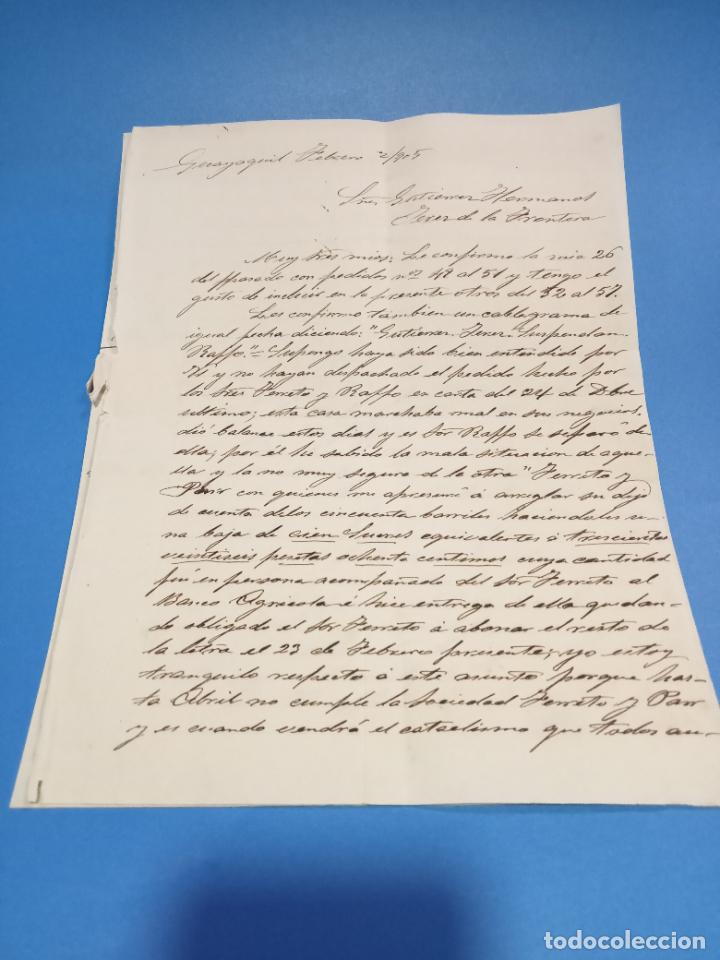 Guayaquil Febrero 2/905
Sres Gutierrez Hermanos
Jerez de la Frontera
Muy Sres mios: Le confirmo la mia 26
del ppasado con pedidos nos 48 al 51 y tengo el
gusto de incluir en la presente otros del 52 al 57.
Les confirmo tambien un cablegrama de
igual fecha diciendo: "Gutierrez Jerez Suspendan
Raffo" = Supongo haya sido bien entendido por
y no hayan despachado el pedido hecho por
los Sres Ferreto y Raffo en carta del 24 de Dbre
ultimo; esta casa marchaba mal en sus negocios,
dió balance estos dias y es Sor Raffo se separó de
ella; por él he sabido la mala situacion de aque-
lla y la no muy segura de la otra "Ferreto y
Parr con quienes me apresuré á arreglar su
de cuenta de los cincuenta barriles haciendoles u-
na baja de cien Sucres equivalentes á trescientas
veintiseis pesetas ochenta centimos cuya cantidad
fuí en persona acompañado del Sor Ferreto al
Banco Agricola é hice entrega de ella quedan-
do obligado el Sor Ferreto á abonar el resto de
la letra el 23 de Febrero presente; yo estoy
tranquilo respecto á este asunto porque has-
ta Abril no cumple la Sociedad Ferreto y Parr
y es cuando vendrá el cataclismo que todos au-
todocoleccion
todocoleccion.net